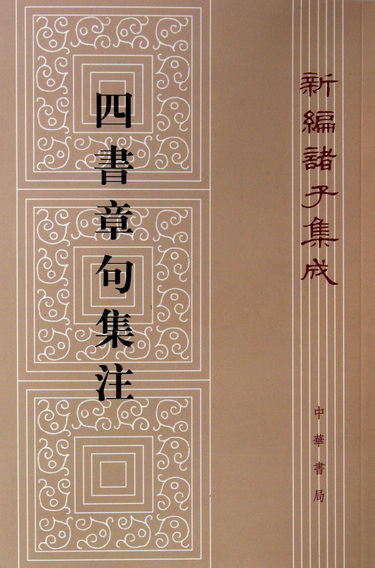 新編諸子集成
四書章句集注
中華書局